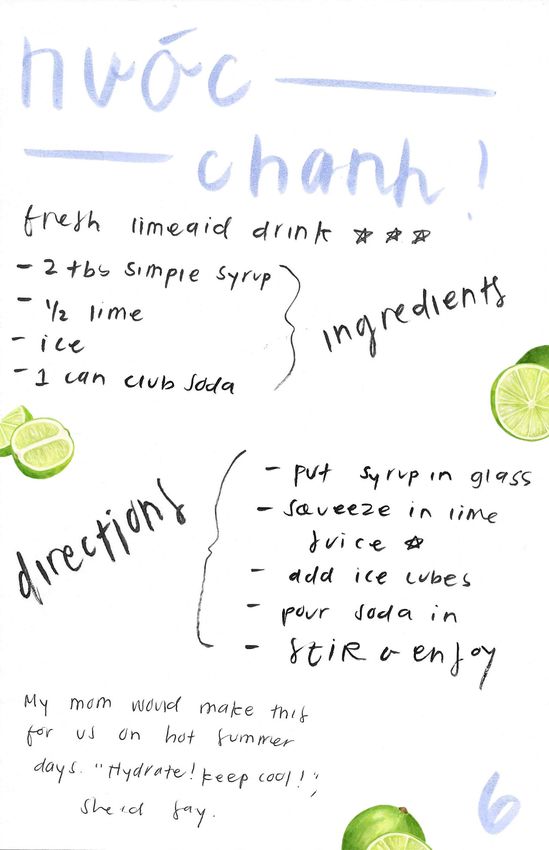 nước
chanh!
fresh limeaid drink ☆☆☆
- 2 tbs simple syrup
- 1/2 lime
- ice
- 1 can club soda
ingredients
directions
- put syrup in glass
- squeeze in lime
juice ☆
- add ice cubes
- pour soda in
- STIR & enjoy
My mom would make this
for us on hot summer
days. "Hydrate! keep cool!",
she'd say.
6